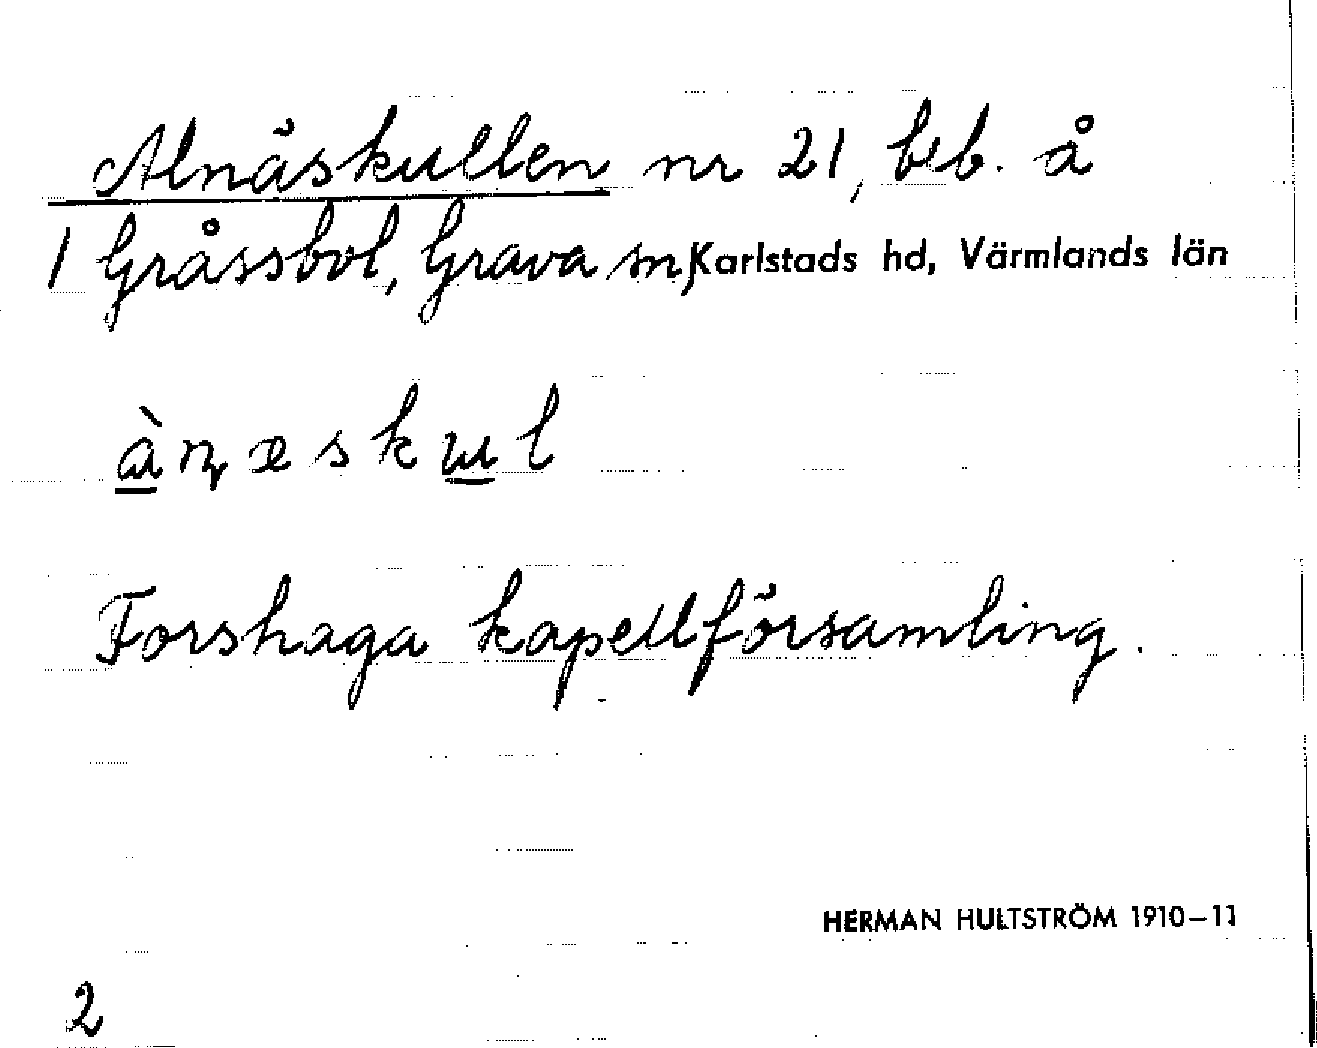 Alnäskullen nr 21, beb. å
1 Gråssbol, Grava sn, Karlstads hd, Värmlands län
àn̥æskul
Forshaga kapellförsamling.
HERMAN HULTSTRÖM 1910–11
2